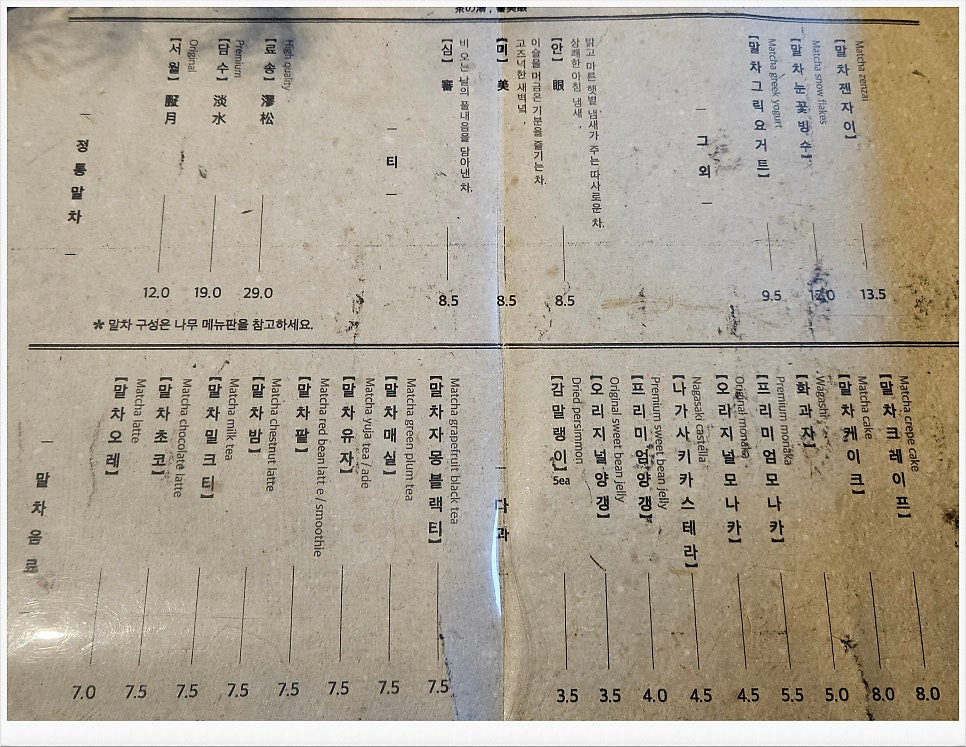 茶の潮 , 審美眼
정통말차
【서월】 月
Original
12.0
【담수】 淡水
Premium
19.0
【료송】 松
High quality
29.0
* 말차 구성은 나무 메뉴판을 참고하세요.
티
【심】 審
비 오는 날의 풀내음을 담아낸 차.
8.5
【미】 美
고즈넉한 새벽녘,
이슬을 머금은 기분을 즐기는 차.
8.5
【안】 眼
상쾌한 아침 냄새,
밝고 마른 햇볕 냄새가 주는 따사로운 차.
8.5
그 외
【말차그릭요거트】
Matcha greek yogurt
9.5
【말차눈꽃빙수】
Matcha snow flakes
12.0
【말차젠자이】
Matcha zenzai
13.5
말차음료
【말차오레】
Matcha latte
7.0
【말차초코】
Matcha chocolate latte
7.5
【말차밀크티】
Matcha milk tea
7.5
【말차밤】
Matcha chestnut latte
7.5
【말차팥】
Matcha red bean latte / smoothie
7.5
【말차유자】
Matcha yuja tea / ade
7.5
【말차매실】
Matcha green plum tea
7.5
【말차자몽블랙티】
Matcha grapefruit black tea
7.5
다과
【감말랭이】 5ea
Dried persimmon
3.5
【오리지널양갱】
Original sweet bean jelly
3.5
【프리미엄양갱】
Premium sweet bean jelly
4.0
【나가사키카스테라】
Nagasaki castella
4.5
【오리지널모나카】
Original monaka
4.5
【프리미엄모나카】
Premium monaka
5.5
【화과자】
Wagashi
5.0
【말차케이크】
Matcha cake
8.0
【말차크레이프】
Matcha crepe cake
8.0